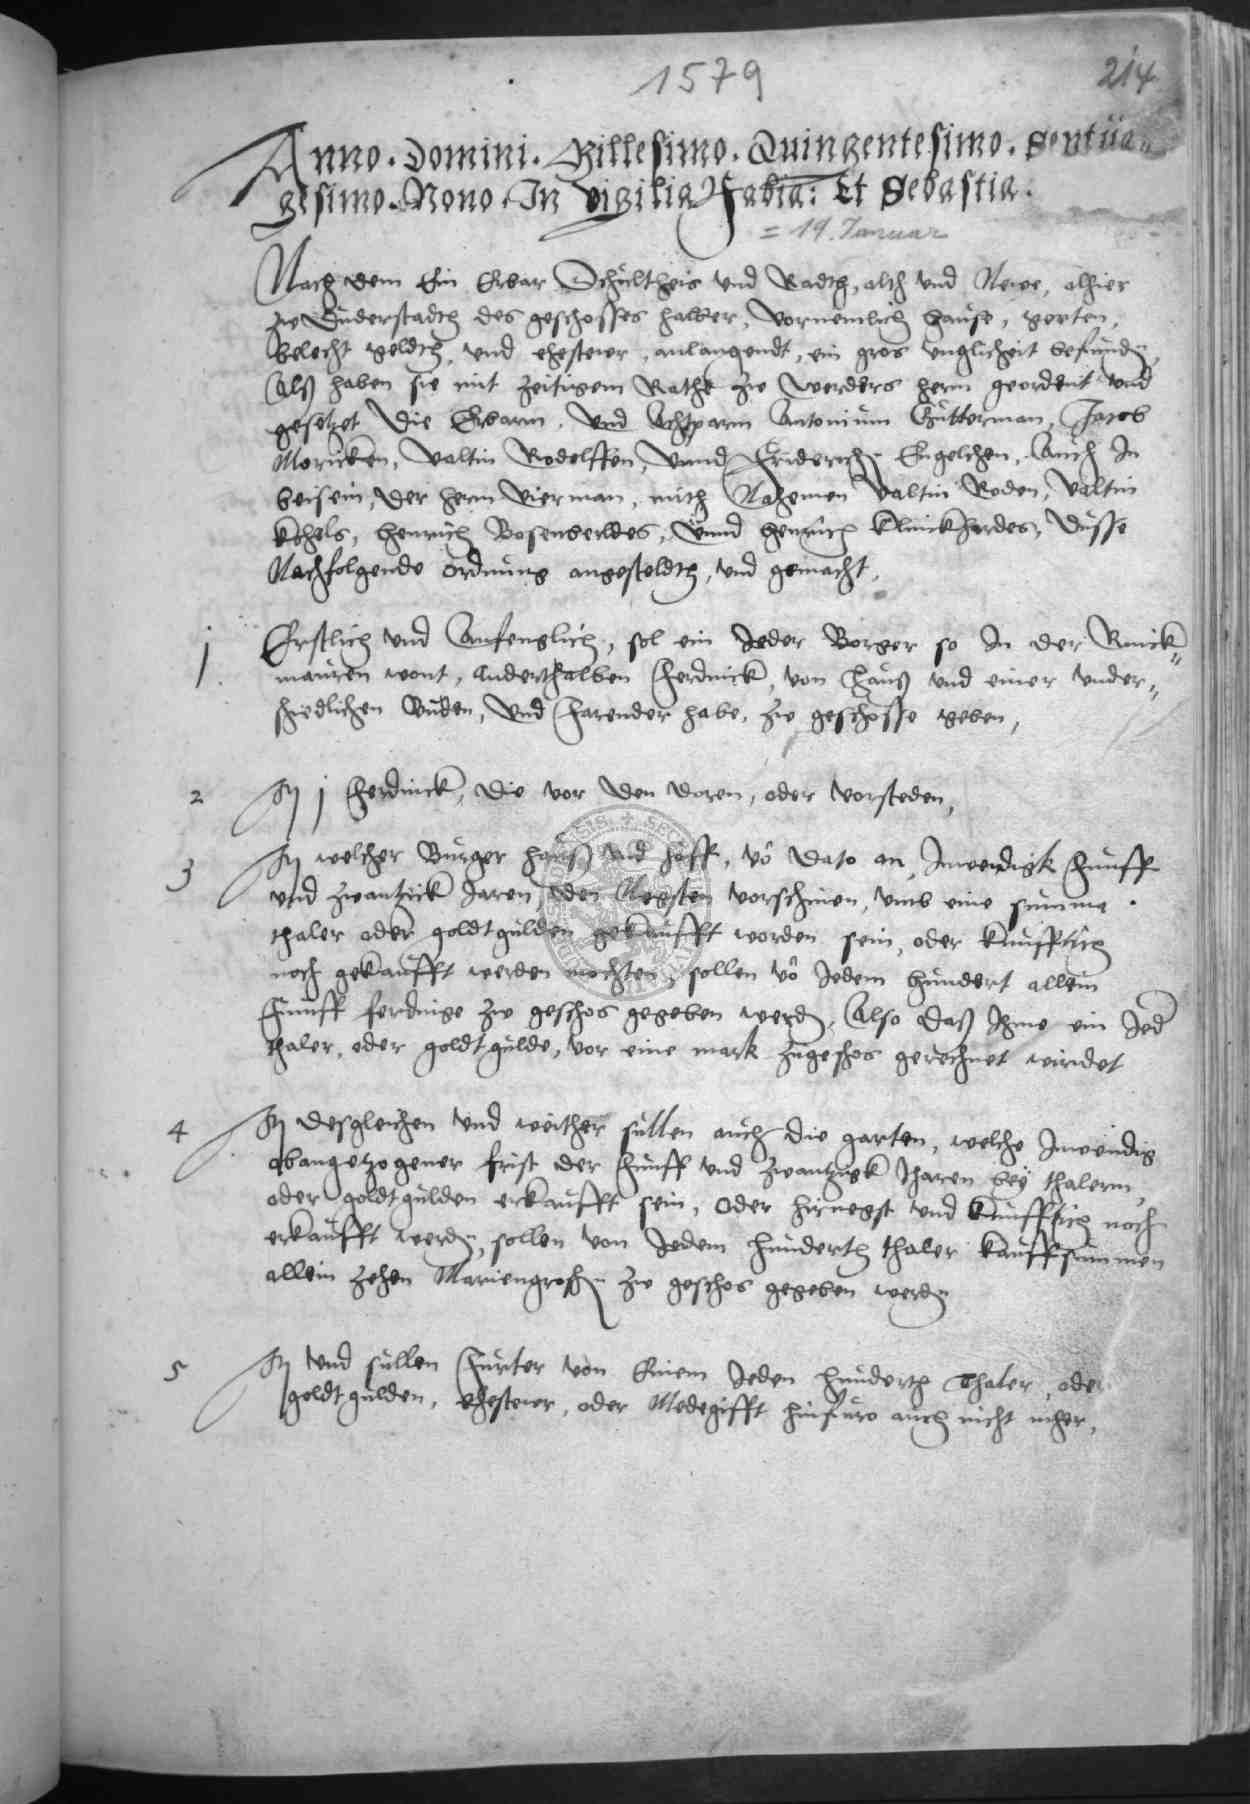 1579
214
Anno . Domini . Millesimo . Quingentesimo . Septua„
gesimo . Nono . In Vigilia Fabia: Et Sebastia:
= 19. Januar
Nach dem Ein Erbar Schultheis und Radth, alth und Newe, alhier
zw Duderstadth des geschosses halber, vornemlich heuse, gerten,
belecht geldth, und ehestewr, anlangendt, ein gros unglicheit befunden,
Alß haben sie mit zeitigem Rathe zw werders herrn geordent und
gesetzet die Erbarn, und Achtparn Antonium Gutterman, Jacob
Moricken, Valtin Rodolffen, Unnd Friderich Engelchen, Auch In
beisein, der hern Vierman, mith Nahemen Valtin Roden, Valtin
Kthels, Henrich Bosenbeldes, Unnd Henrich Klinckhardes, Dusse
Nachfolgende ordnung angesteldth, und gemacht,
1 Erstlich und Anfenglich, sol ein Jeder Borger so In der Rinck„
mauren wont, Anderthalben Ferdinck, von Hauß und einer under„
schiedlichen Buden, und Farender habe, zw geschosse geben,
2 It j Ferdinck, die vor den doren, oder vorsteden,
3 It welcher Burger hauß und hoff, vo dato an, Inwendigk Funff
und zwantzick Jaren, den Negsten vorschinen, umb eine summa
thaler oder goldtgulden gekaufft worden sein, oder kunfftich
noch gekaufft werden mochten, sollen vo Jedem hundert allein
Funff ferdinge zw geschos gegeben werden, Also daß Ihme ein Jed
thaler, oder goldtgulde, vor eine mark zugeschos gerechnet wirdet
4 It desgleichen und weither sullen auch die garten, welche Inwendig
obangetzogener frist der Funff und zwantzigk Jharen bey thalern,
oder goldtgulden erkaufft sein, Oder hirnegst und kunfftich noch
erkaufft werden, sollen von Jedem hunderth thaler kauffsummen
allein zehen Mariengroschen zw geschos gegeben werden
5 It und sullen Furter von Einem Jeden hunderth Thaler, oder
goldtgulden, Ehestewr, oder Medegifft hinfuro auch nicht meher,